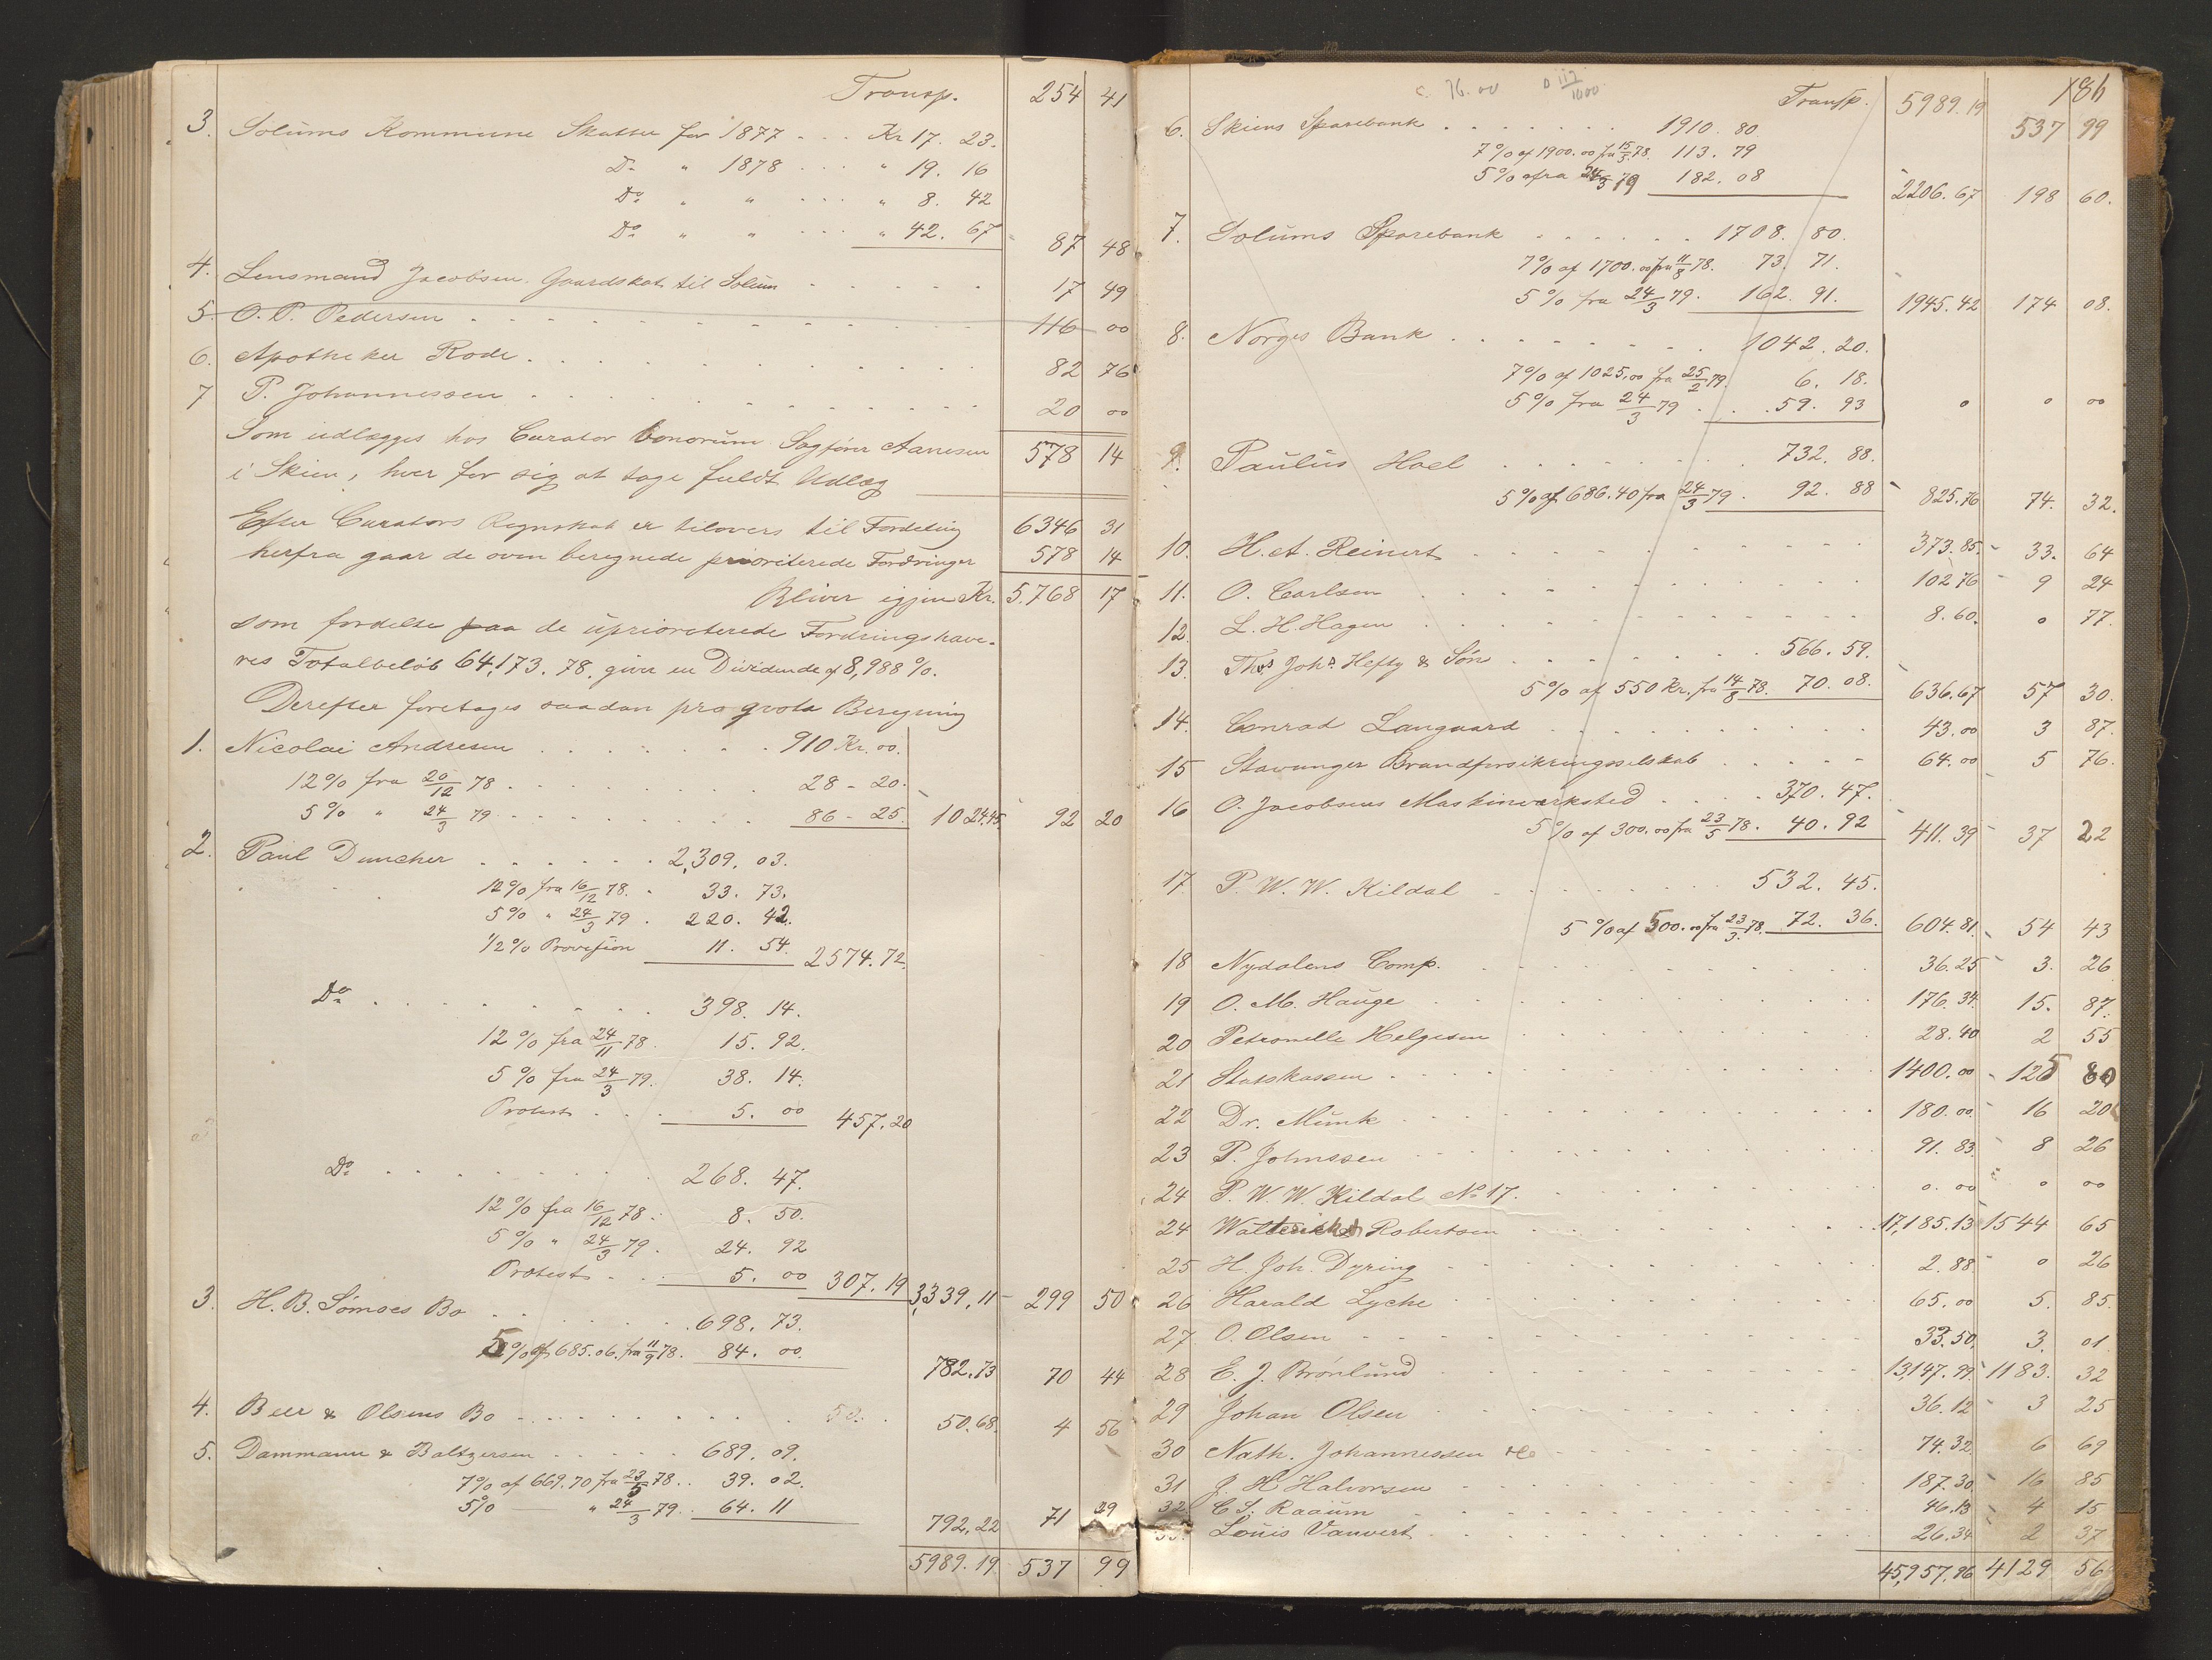 Transp. 254 41
3. Solums Kommune Skatter for 1877 . . . Kr 17. 23.
Do " 1878 . . . " 19. 16
Do " " . . . " 8. 42
Do " " . . . " 42. 67 87 48
4. Lensmand Jacobsen, Gaardskat til Solum . . . . . 17 49
5. O. P. Pedersen . . . . . . . . . . 116 00
6. Apotheker Rode . . . . . . . . . . 82 76
7 P. Johannessen . . . . . . . . . . 20 00
Som udlægges hos Curator bonorum Sagfører Aanesen 578 14
i Skien, hver for sig at tage fuldt Udlæg
Efter Curators Regnskab er tilovers til Fordeling 6346 31
herfra gaar de oven beregnede prioriterede Fordringer 578 14
Bliver igjen Kr. 5.768 17
som fordelte paa de uprioriterede Fordringshave-
res Totalbeløb 64,173. 78, giver en Dividende af 8,988 %.
Derefter foretages saadan pro qvota Beregning
1. Nicolai Andresen . . . . . . . 910 Kr. 00.
12% fra 20/12 78 . . . . . . . 28 - 20.
5% " 24/3 79 . . . . . . . 86 - 25. 1024.45. 92 20
2. Paul Duncker . . . . . . 2,309. 03.
12% fra 16/12 78. . 33. 73.
5% " 24/3 79 . 220. 42.
1/2% Provision 11. 54. 2574.72.
Do . . . . . . . . 398. 14.
12% fra 24/11 78. 15. 92.
5% fra 24/3 79. 38. 14.
Protest . . . 5. 00 457.20
Do . . . . . . . 268. 47.
12% fra 16/12 78. 8. 50.
5% " 24/3 79. 24. 92
Protest . . . 5. 00 307.19 3,339,11 299 50
3. H. B. Sømoes Bo . . . . . . . 698. 73.
5% af 685.06. fra 11/9 78. 84. 00. 782.73 70 44
4. Beer & Olsens Bo . . . . . . . . . . 50.68. 4 56
5. Dammann & Baltzersen . . . . . 689. 09.
7% af 669.70 fra 23/5 78 . . 39. 02.
5% " 24/3 79. 64. 11 792,22 71 29
5989.19 537 99
c. 76.00 D 117/1000 186
Transp. 5989.19 537 99
6. Skiens Sparebank . . . . . . . 1910. 80
7% af 1900.00 fra 15/5 78. 113. 79
5% fra 24/3 79 182. 08 2206.67 198 60.
7. Solums Sparebank . . . . . . 1708. 80.
7% af 1700.00 fra 11/8 78. 73. 71.
5% fra 24/3 79. 162. 91. 1945.42 174 08.
8. Norges Bank . . . . . . . . 1042. 20.
7% af 1025.00 fra 25/2 79. 6. 18.
5% fra 24/3 79 . . . 59. 93 0 0 00
9. Paulus Hoel . . . . . . . 732. 88.
5% af 686.40 fra 24/3 79. 92. 88 825.76 74. 32.
10. H. A. Reinert . . . . . . . . . 373.85. 33. 64
11. O. Carlsen . . . . . . . . . . 102 76 9 24
12. L. H. Hagen . . . . . . . . . . 8. 60. 0 77.
13. Ths Johs Hefty & Søn . . . . . . . 566. 59.
5% af 550 Kr. fra 14/8 78. 70. 08. 636.67 57 30.
14. Conrad Langaard . . . . . . . . 43.00 3 87.
15 Stavanger Brandforsikringsselskab . . . . . 64.00 5 76.
16 O. Jacobsens Maskinværksted . . . . 370. 47.
5% af 300.00 fra 23/5 78. 40. 92 411. 39 37 22
17. P. W. W. Kildal . . . . . . . . 532. 45.
5% af 500.00 fra 23/3 78. 72. 36. 604.81. 54 43
18 Nydalens Comp. . . . . . . . . . 36.25 3. 26
19 O. M. Hauge . . . . . . . . . 176. 34. 15. 87.
20 Petronelle Helgesen . . . . . . . . 28.40 2 55
21 Statskassen . . . . . . . . . . 1400.00 125 80
22 Dr. Munk . . . . . . . . . . 180.00 16 20
23 P. Johnssen . . . . . . . . . 91. 83 8 26
24 P. W. W. Kildal No 17. . . . . . . . 0. 00 0 00
24 Robertsen . . . . . . . 17,185.13 1544 65
25 H. Joh. Dyring . . . . . . . . . 2. 88 0 26
26 Harald Lyche . . . . . . . . . 65.00 5. 85.
27 O. Olsen . . . . . . . . . . 33.50 3. 01
28 E. J. Brønlund . . . . . . . . . 13,147.99. 1183. 32
29 Johan Olsen . . . . . . . . . 36.12 3 25
30 Nath. Johannessen . . . . . . . 74.32 6 69
31 J. H Halvorsen . . . . . . . . . 187.30 16 85
32 C. S. Raaum . . . . . . . . . 46.13 4 15
33. Louis Vanvert . . . . . . . . . 26.34 2 37
45,957.96 4129 56